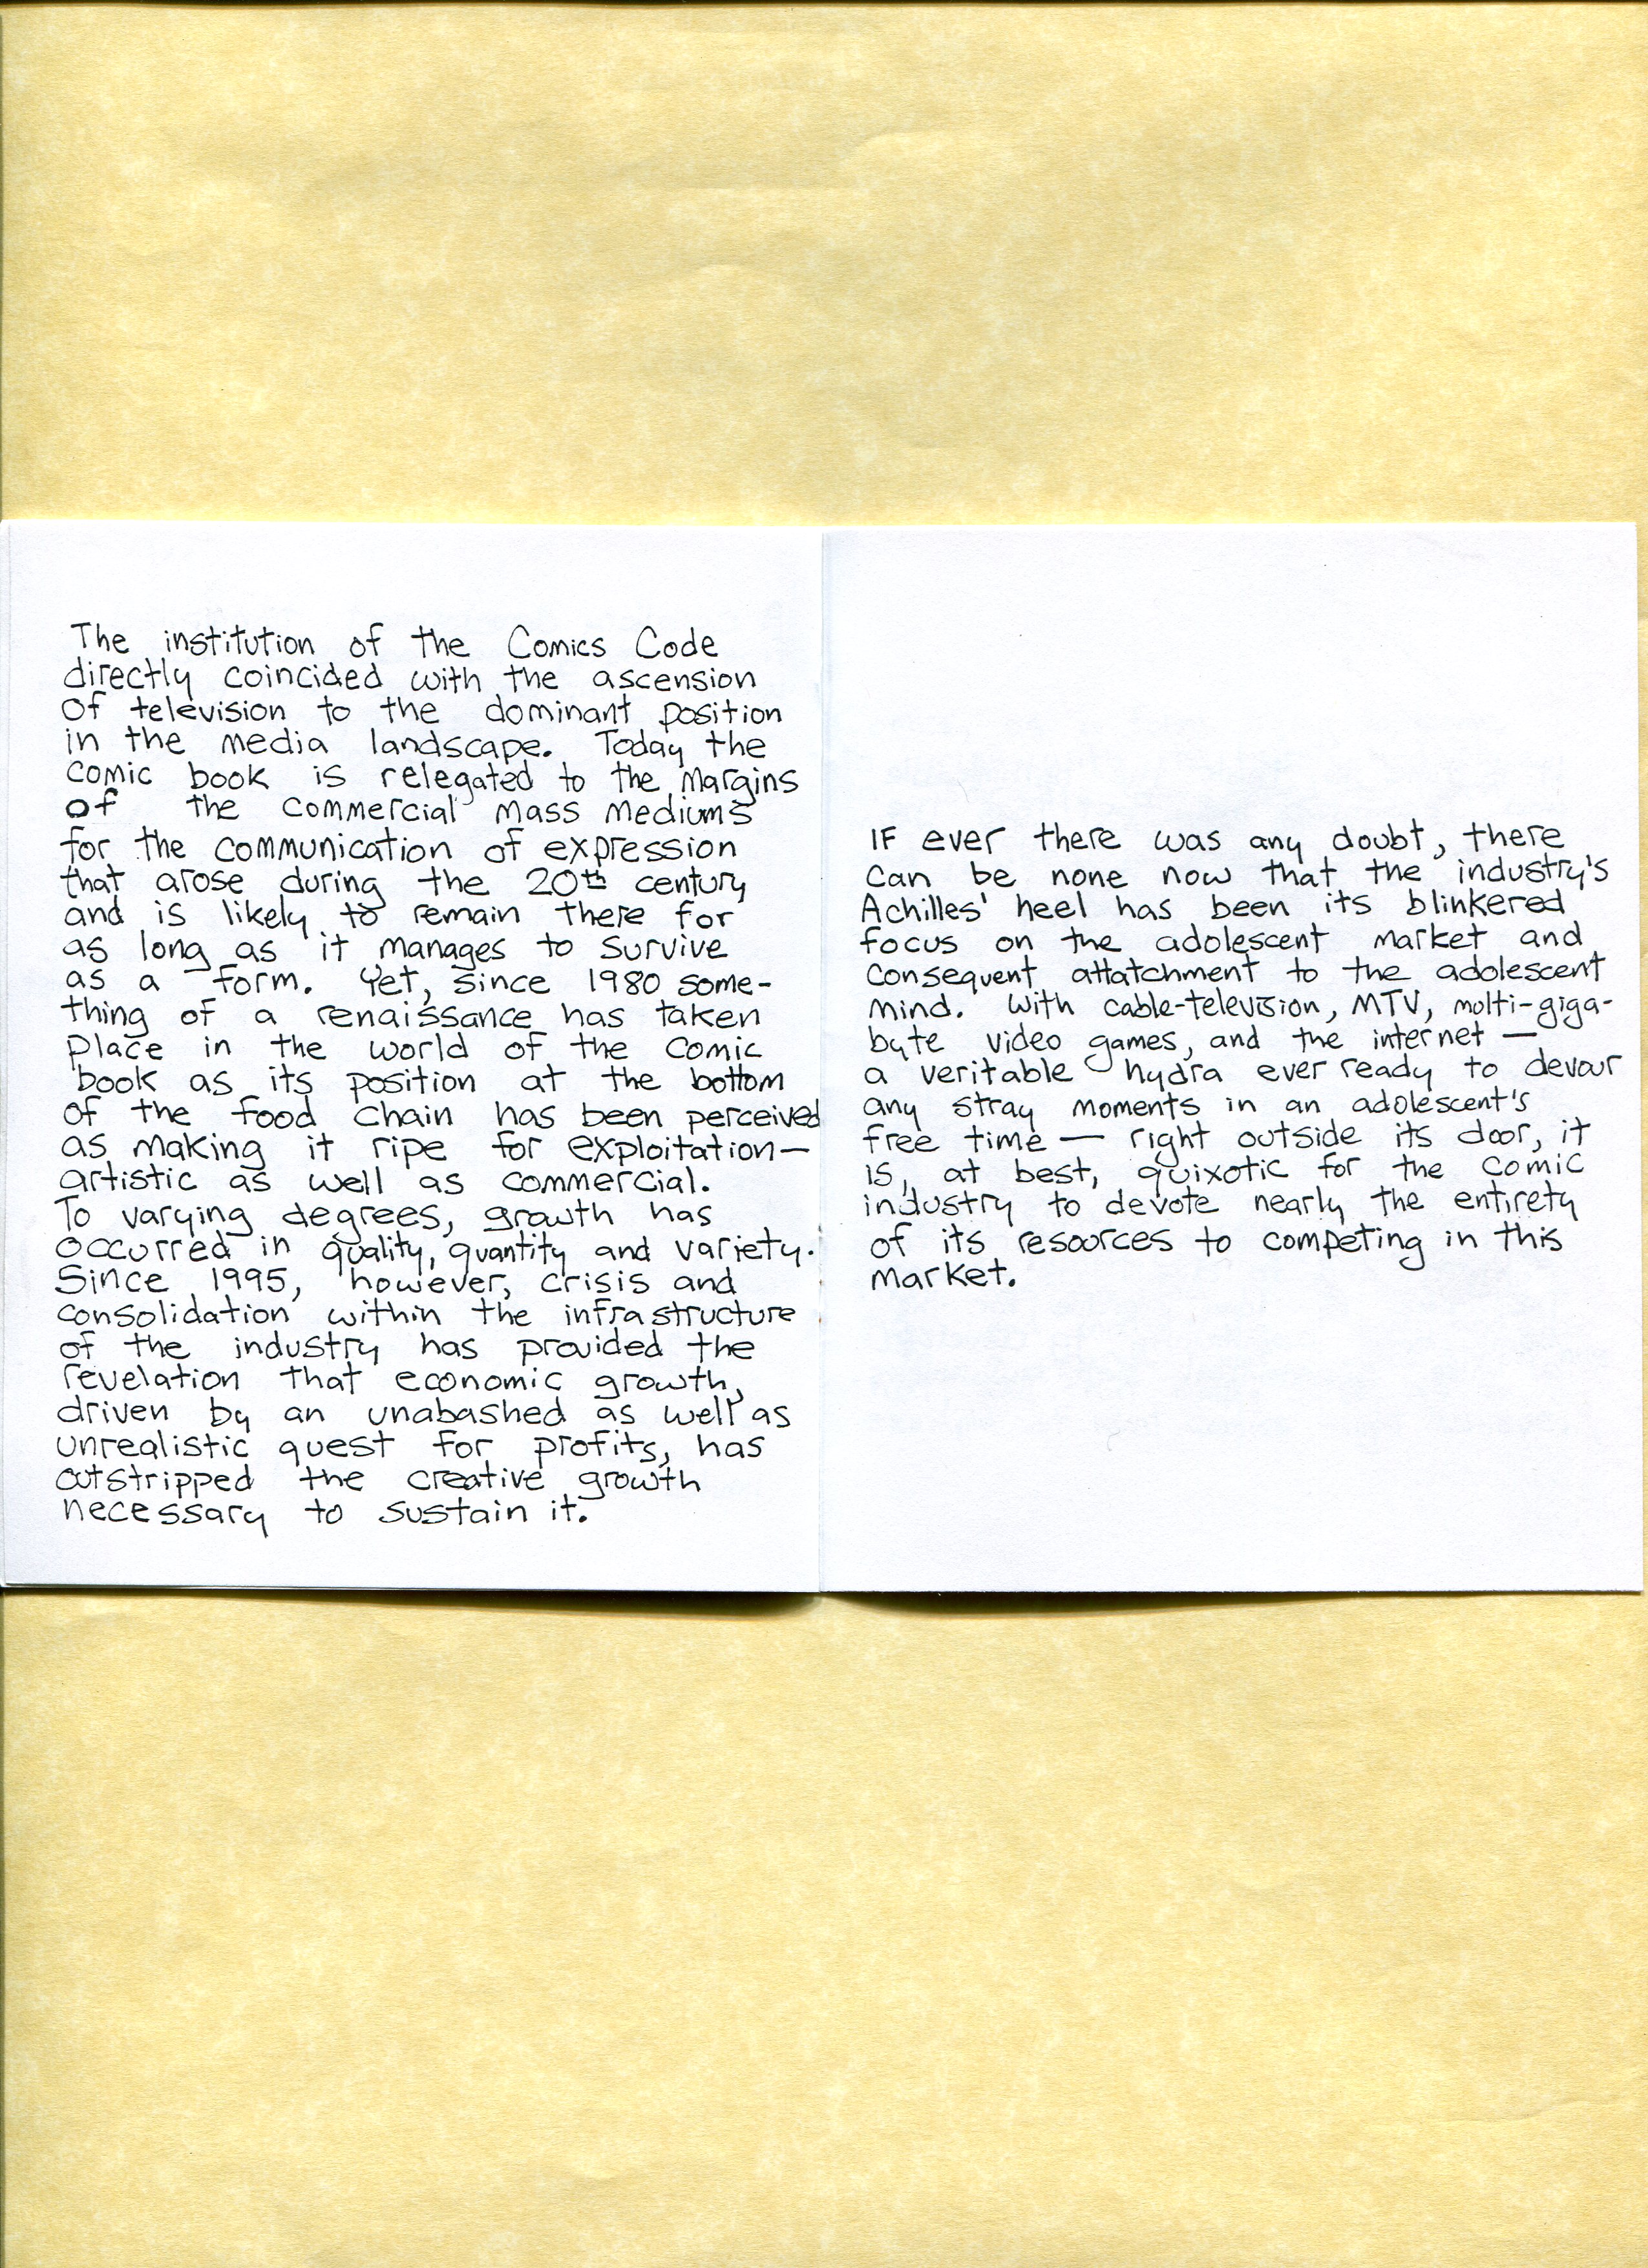 The institution of the Comics Code
directly coincided with the ascension
of television to the dominant position
in the media landscape. Today the
comic book is relegated to the margins
of the commercial mass mediums
for the communication of expression
that arose during the 20th century
and is likely to remain there for
as long as it manages to survive
as a form. Yet, since 1980 some-
thing of a renaissance has taken
place in the world of the comic
book as its position at the bottom
of the food chain has been perceived
as making it ripe for exploitation—
artistic as well as commercial.
To varying degrees, growth has
occurred in quality, quantity and variety.
Since 1995, however, crisis and
consolidation within the infrastructure
of the industry has provided the
revelation that economic growth,
driven by an unabashed as well as
unrealistic quest for profits, has
outstripped the creative growth
necessary to sustain it.
IF ever there was any doubt, there
can be none now that the industry's
Achilles' heel has been its blinkered
focus on the adolescent market and
consequent attatchment to the adolescent
mind. With cable-television, MTV, molti-giga-
byte video games, and the internet —
a veritable hydra ever ready to devour
any stray moments in an adolescent's
free time — right outside its door, it
is, at best, quixotic for the comic
industry to devote nearly the entirety
of its resources to competing in this
market.